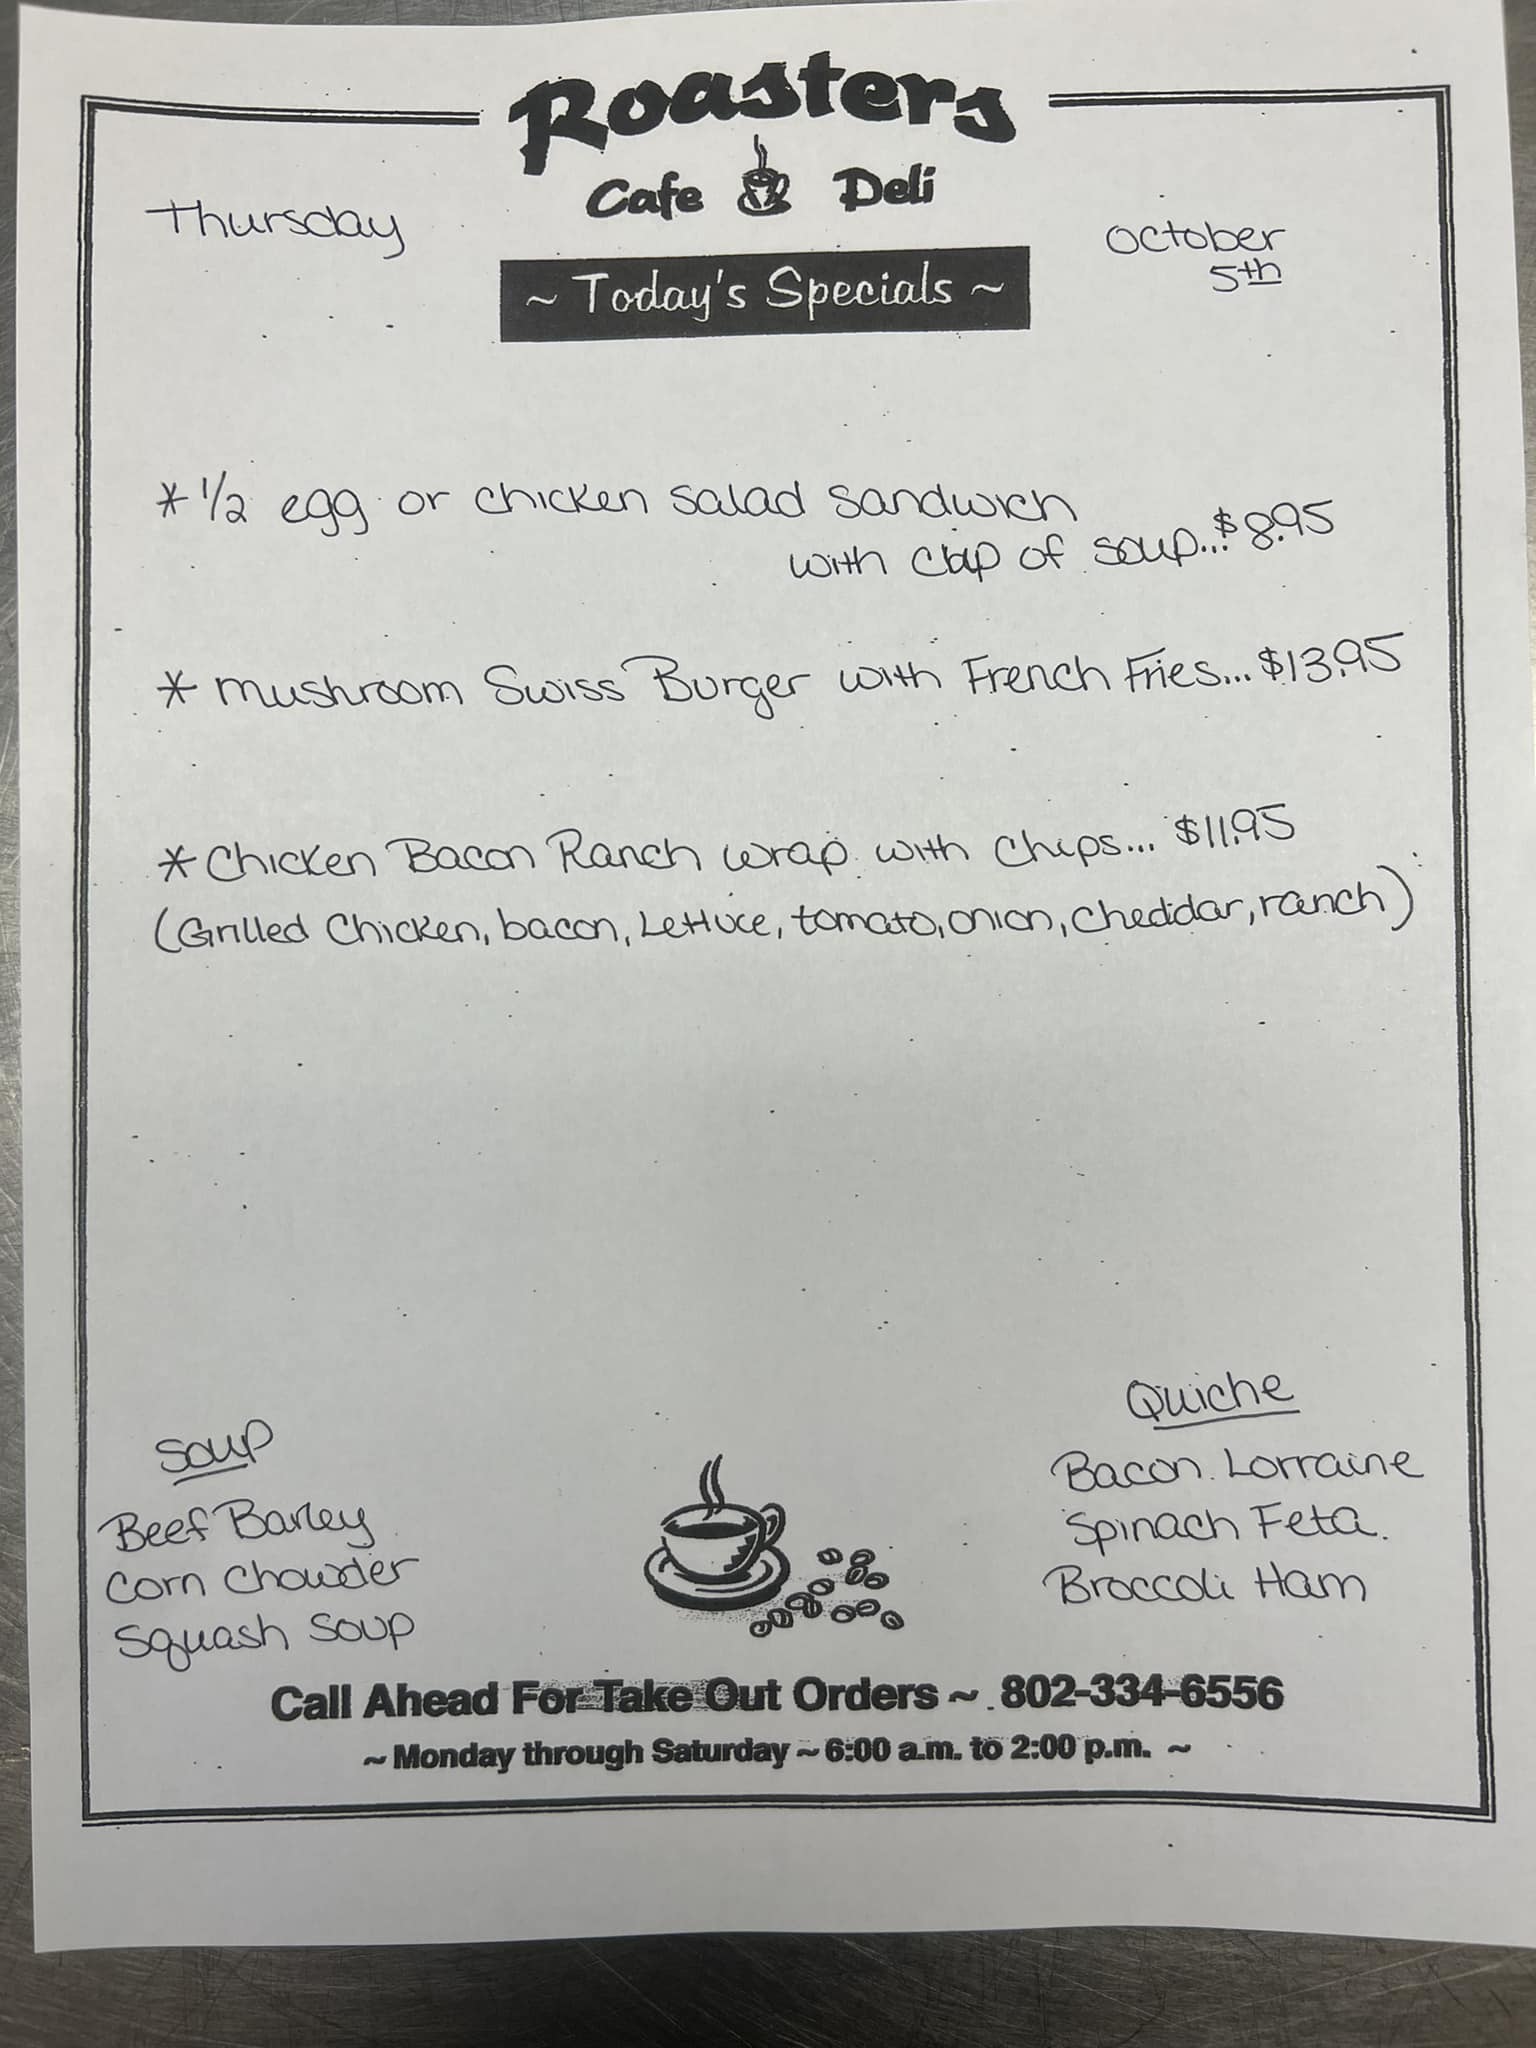 Roasters
Cafe Deli
Thursday
October
5th
~ Today's Specials ~
* 1/2 egg or chicken salad sandwich
with cup of soup...$8.95
* mushroom Swiss Burger with French Fries...$13.95
* Chicken Bacon Ranch wrap with chips... $11.95
(Grilled Chicken, bacon, Lettuce, tomato, onion, cheddar, ranch)
Soup
Beef Barley
Corn Chowder
Squash Soup
Quiche
Bacon Lorraine
Spinach Feta
Broccoli Ham
Call Ahead For Take Out Orders ~ 802-334-6556
~ Monday through Saturday ~ 6:00 a.m. to 2:00 p.m. ~